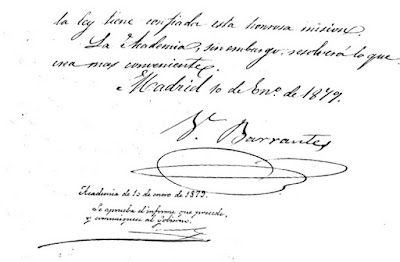 la ley tiene confiada esta honrosa mision.
La Academia, sin embargo, resolverá lo que
crea mas conveniente.
Madrid 10 de En.º de 1879.
V. Barrantes
Academia de 10 de enero de 1879.
Se aprueba el informe que precede,
y comuníquese al Gobierno.